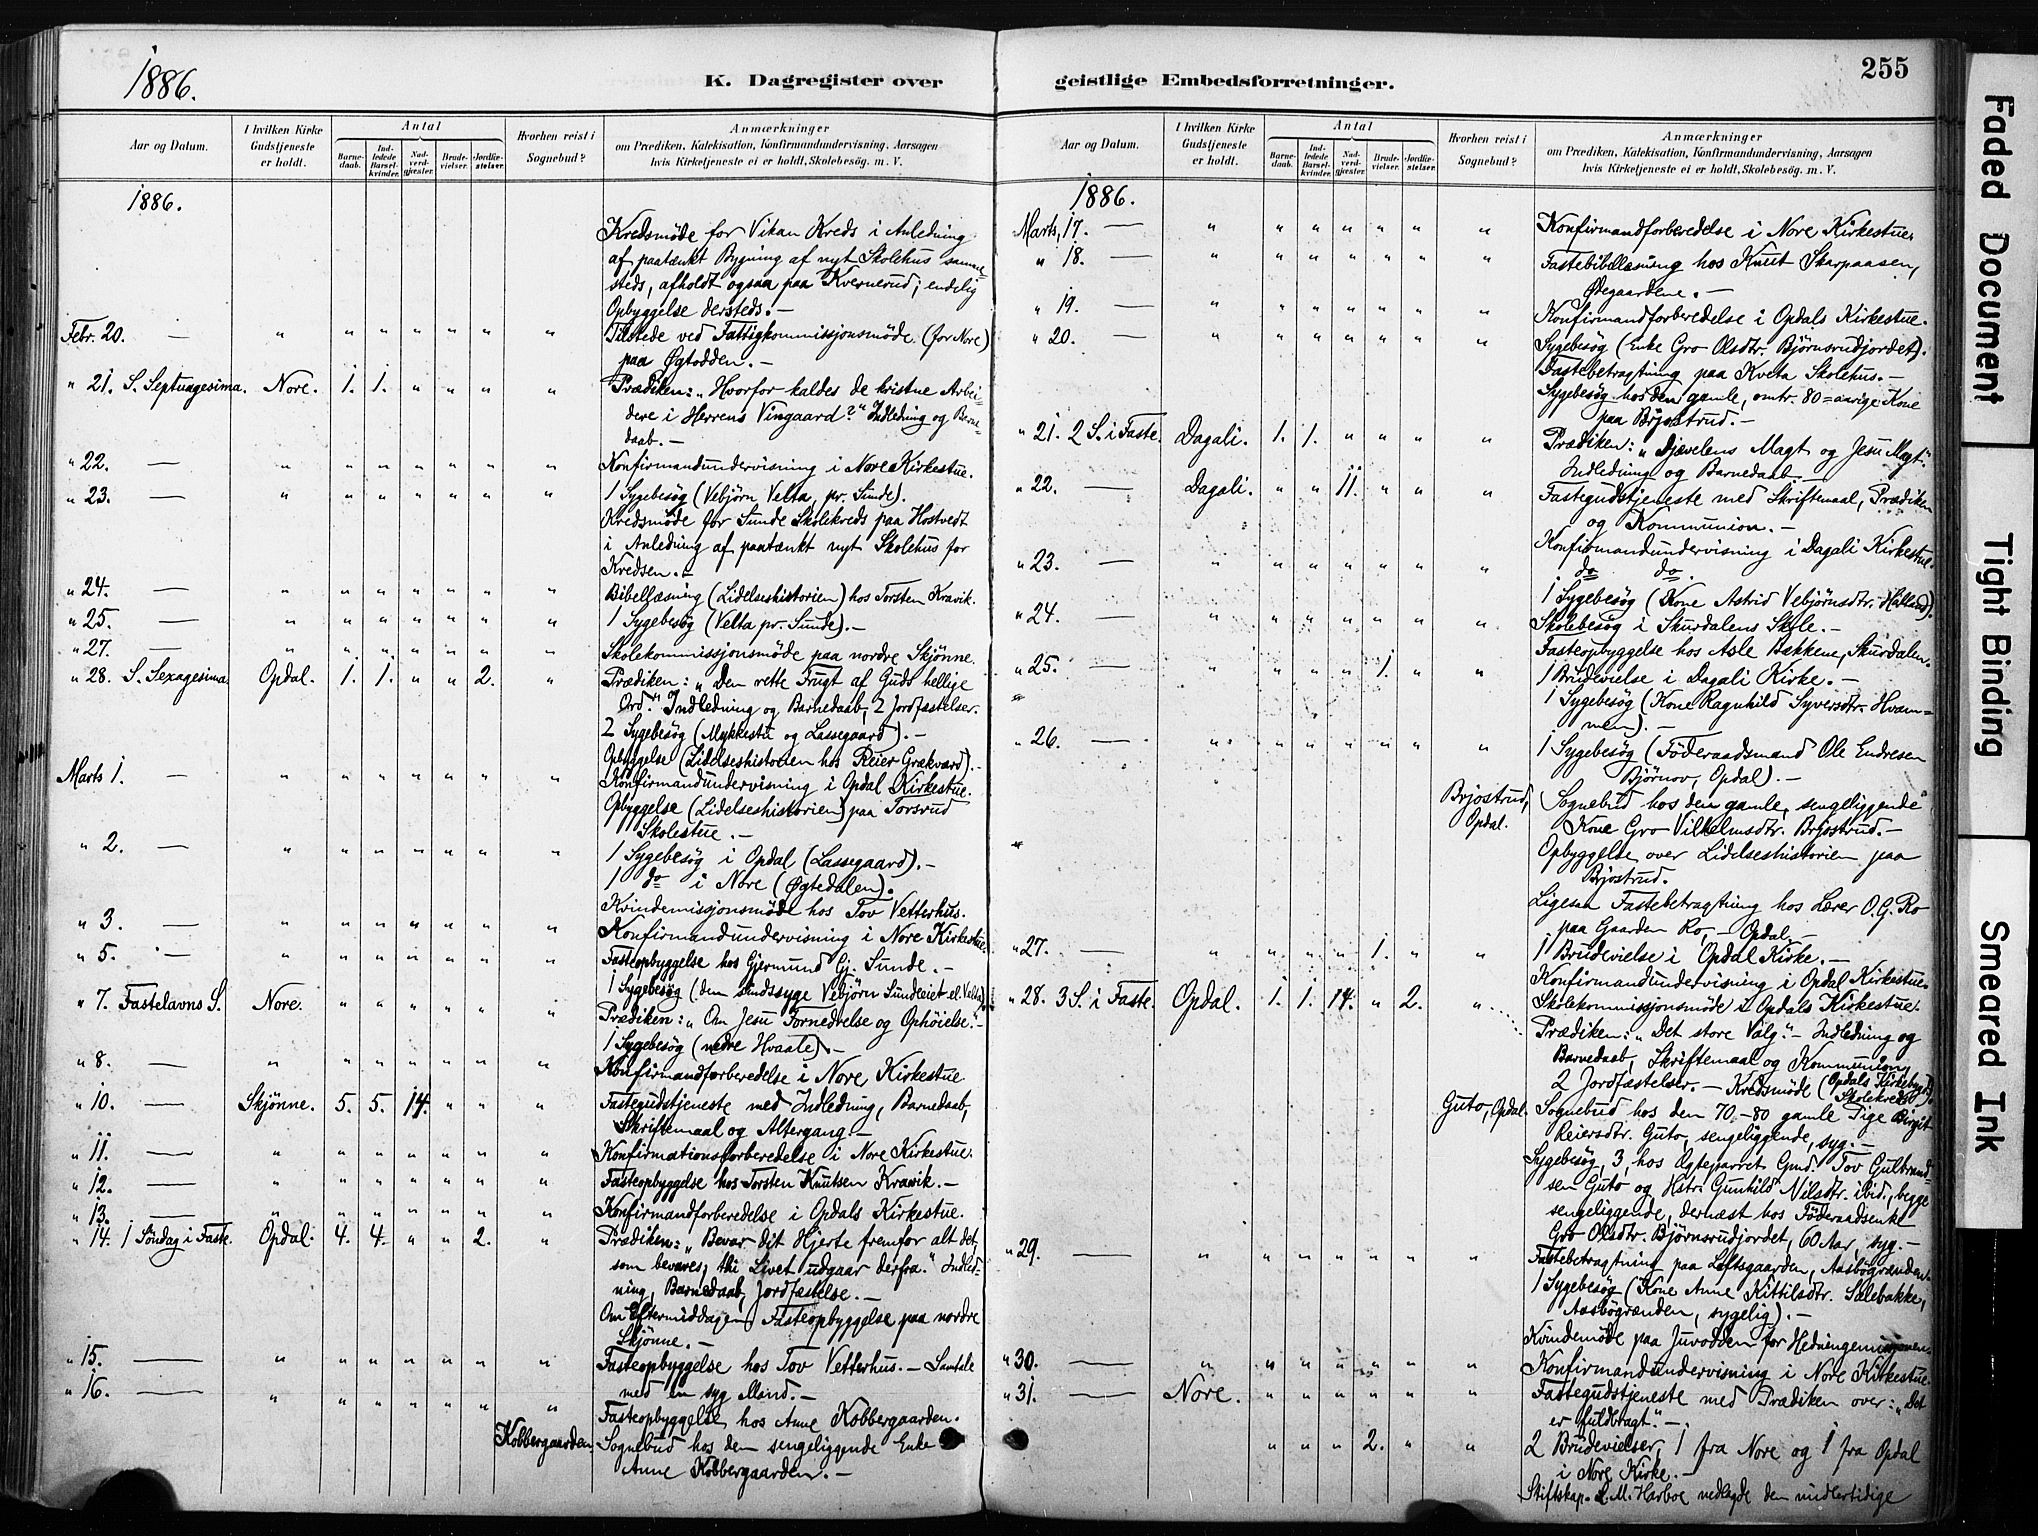 1886.
K. Dagregister over
geistlige Embedsforretninger.
255
Aar og Datum.
I hvilken Kirke Gudstjeneste er holdt.
Antal
Barnedaab.
Indledede Barselkvinder.
Nadverdgjæster.
Brudevielser.
Jordfæstelser.
Hvorhen reist i Sognebud?
Anmærkninger
om Prædiken, Katekisation, Konfirmandundervisning, Aarsagen
hvis Kirketjeneste ei er holdt, Skolebesøg. m. V.
1886.
Kredsmøde for Vikan Kreds i Anledning
af paatænkt Bygning af nyt Skolehus samme-
steds, afholdt ogsaa paa Kvernerud; endelig
Opbyggelse dersteds. —
Febr. 20. — " " " " " " " Tilstede ved Fattigkommissjonsmøde (for Nore)
paa Øgtodden. —
" 21. S. Septuagesima. Nore. 1. 1. " " " " Prædiken: „Hvorfor kaldes de kristne Arbei-
dere i Herrens Vingaard?" Indledning og Barne-
daab. —
" 22. — " " " " " " " Konfirmandundervisning i Nore Kirkestue.
" 23. — " " " " " " " 1 Sygebesøg (Vebjörn Velta, pr. Sunde).
Kredsmøde for Sunde Skolekreds paa Hostvedt
i Anledning af paatænkt nyt Skolehus for
Kredsen. —
" 24. — " " " " " " " Bibellæsning (Lidelseshistorien) hos Torsten Kravik.
" 25. — " " " " " " " 1 Sygebesøg (Velta pr. Sunde). —
" 27. — " " " " " " " Skolekommissjonsmøde paa nordre Skjønne.
" 28. S. Sexagesima. Opdal. 1. 1. " " 2. " Prædiken: „Den rette Frugt af Guds hellige
Ord." Indledning og Barnedaab, 2 Jordfæstelser.
2 Sygebesøg (Mykkestu og Lassegaard). —
Opbyggelse (Lidelseshistorien hos Reier Grækvard). —
Marts 1. — " " " " " " " Konfirmandundervisning i Opdal Kirkestue.
Opbyggelse (Lidelseshistorien) paa Torsrud
Skolestue. —
" 2. — " " " " " " " 1 Sygebesøg i Opdal (Lassegaard). —
1 do i Nore (Øgtedalen).
Kvindemissjonsmøde hos Tov Vetterhus.
" 3. — " " " " " " " Konfirmandundervisning i Nore Kirkestue.
" 5. — " " " " " " " Fasteopbyggelse hos Gjermund Gj. Sunde. —
1 Sygebesøg (den sindssyge Vebjörn Sundeiet el. Velta).
" 7. Fastelavns S. Nore. " " " " " " Prædiken: „Om Jesu Fornedrelse og Ophöielse." —
1 Sygebesøg (nedre Hvaale). —
" 8. — " " " " " " " Konfirmandforberedelse i Nore Kirkestue
" 10. — Skjønne. 5. 5. 14. " " " Fastegudstjeneste med Indledning, Barnedaab,
Skriftemaal og Altergang. —
" 11. — " " " " " " " Konfirmationsforberedelse i Nore Kirkestue.
" 12. — " " " " " " " Fasteopbyggelse hos Torsten Knutsen Kravik. —
" 13. — " " " " " " " Konfirmandforberedelse i Opdals Kirkestue.
" 14. 1 Söndag i Faste. Opdal. 4. 4. " " 2. " Prædiken: „Bevar dit Hjerte fremfor alt det,
som bevares; thi Livet udgaar derfra." Indled-
ning, Barnedaab, Jordfæstelse. —
Om Eftermiddagen Fasteopbyggelse paa nordre
Skjönne. —
" 15. — " " " " " " " Fasteopbyggelse hos Tov Vetterhus. — Samtale
med en syg Mand. —
" 16. — " " " " " " " Fasteopbyggelse hos Anne Kobbergaarden.
Kobbergaarden. Sognebud hos den sengeliggende Enke
Anne Kobbergaarden. —
Aar og Datum.
I hvilken Kirke Gudstjeneste er holdt.
Antal
Barnedaab.
Indledede Barselkvinder.
Nadverdgjæster.
Brudevielser.
Jordfæstelser.
Hvorhen reist i Sognebud?
Anmærkninger
om Prædiken, Katekisation, Konfirmandundervisning, Aarsagen
hvis Kirketjeneste ei er holdt, Skolebesøg. m. V.
1886.
Marts, 17. — " " " " " " " Konfirmandforberedelse i Nore Kirkestue.
" 18. — " " " " " " " Fastebibellæsning hos Knut Skarpaasen,
Ødegaardene. —
" 19. — " " " " " " " Konfirmandforberedelse i Opdals Kirkestue.
" 20. — " " " " " " " Sygebesøg (Enke Gro Olsdtr. Björnsrudjordet).
Fastebetragtning paa Kveta Skolehus. —
Sygebesøg hos den gamle, omtr. 80-aarige Kone
paa Brjostrud. —
" 21. 2 S. i Faste. Dagali. 1. 1. " " " " Prædiken: „Djævelens Magt og Jesu Magt."
Indledning og Barnedaab. —
" 22. — Dagali. " " 11. " " " Fastegudstjeneste med Skriftemaal, Prædiken
og Kommunion. —
Konfirmandundervisning i Dagali Kirkestue.
" 23. — " " " " " " " do do.
1 Sygebesøg (Kone Astrid Vebjørnsdtr. Halland).
" 24. — " " " " " " " Skolebesøg i Skurdalens Skole. —
Fasteopbyggelse hos Asle Bakkene, Skurdalen.
" 25. — " " " " 1. " " 1 Brudevielse i Dagali Kirke. —
1 Sygebesøg (Kone Ragnhild Syversdtr. Hvam-
men). —
" 26. — " " " " " " " 1 Sygebesøg (Föderaadsmand Ole Endresen
Björnov, Opdal). —
Brjostrud, Opdal. Sognebud hos den gamle, sengeliggende
Kone Gro Vilhelmsdtr. Brjostrud. —
Opbyggelse over Lidelseshistorien paa
Brjostrud.
Ligesaa Fastebetragtning hos Lærer O. G. Ro
paa Gaarden Ro, — Opdal. —
" 27. — " " " " 1. " " 1 Brudevielse i Opdal Kirke. —
Konfirmandundervisning i Opdal Kirkestue.
Skolekommissjonsmøde i Opdals Kirkestue.
" 28. 3 S. i Faste. Opdal. 1. 1. 14. " 2. " Prædiken: „Det store Valg." — Indledning og
Barnedaab, Skriftemaal og Kommunion,
2 Jordfæstelser. — Kredsmöde (Opdals Kirkebygd Skolekreds).
Guto, Opdal. Sognebud hos den 70–80 gamle Pige Birgit
Reiersdtr. Guto, sengeliggende, syg. —
Sygebesøg, 3, hos Ægteparret Gmd. Tov Gulbrand-
sen Guto og Hstr. Gunhild Nilsdtr. ibid., begge
sengeliggende, dernæst hos Föderaadsenke
Gro Olsdtr. Björnsrudjordet, 60 Aar, syg. —
" 29. — " " " " " " " Fastebetragtning paa Loftsgaarden, Aasbögrænden.
1 Sygebesøg (Kone Anne Kittilsdtr. Sælebakke,
Aasbögrænden, sygelig). —
Kvindemøde paa Juvodden for Hedningemissjonen.
" 30. — " " " " " " " Konfirmandundervisning i Nore Kirkestue.
" 31. — Nore. " " " " " " Fastegudstjeneste med Prædiken over: „Det
er fuldbragt." —
" " " 2. " " 2 Brudevielser, 1 fra Nore og 1 fra Opdal
i Nore Kirke. —
Stiftskap. L. M. Harboe nedlagde den midlertidige
Faded Document
Tight Binding
Smeared Ink